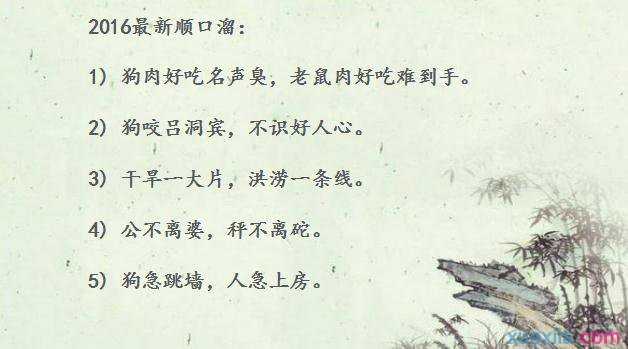 2016最新顺口溜：
1）狗肉好吃名声臭，老鼠肉好吃难到手。
2）狗咬吕洞宾，不识好人心。
3）干旱一大片，洪涝一条线。
4）公不离婆，秤不离砣。
5）狗急跳墙，人急上房。